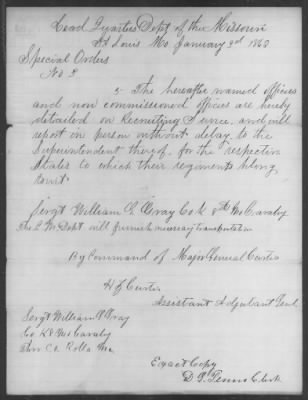 Head Quarters Dept of the Missouri
St Louis Mo. January 2nd 1863
Special Orders
No 2
5 The hereafter named officers
and non commissioned officers are hereby
detailed on Recruiting Service and will
report in person without delay to the
Superintendent thereof for the respective
States to which their regiments belong
to wit
Sergt William Gray Co K 8th Mo Cavalry
The Q M Dept will furnish necessary transportation
By Command of Major General Curtis
H Z Curtis
Assistant Adjutant Genl
Sergt William Gray
Co K Mo Cavalry
Rolla Mo
Exact Copy
Clerk